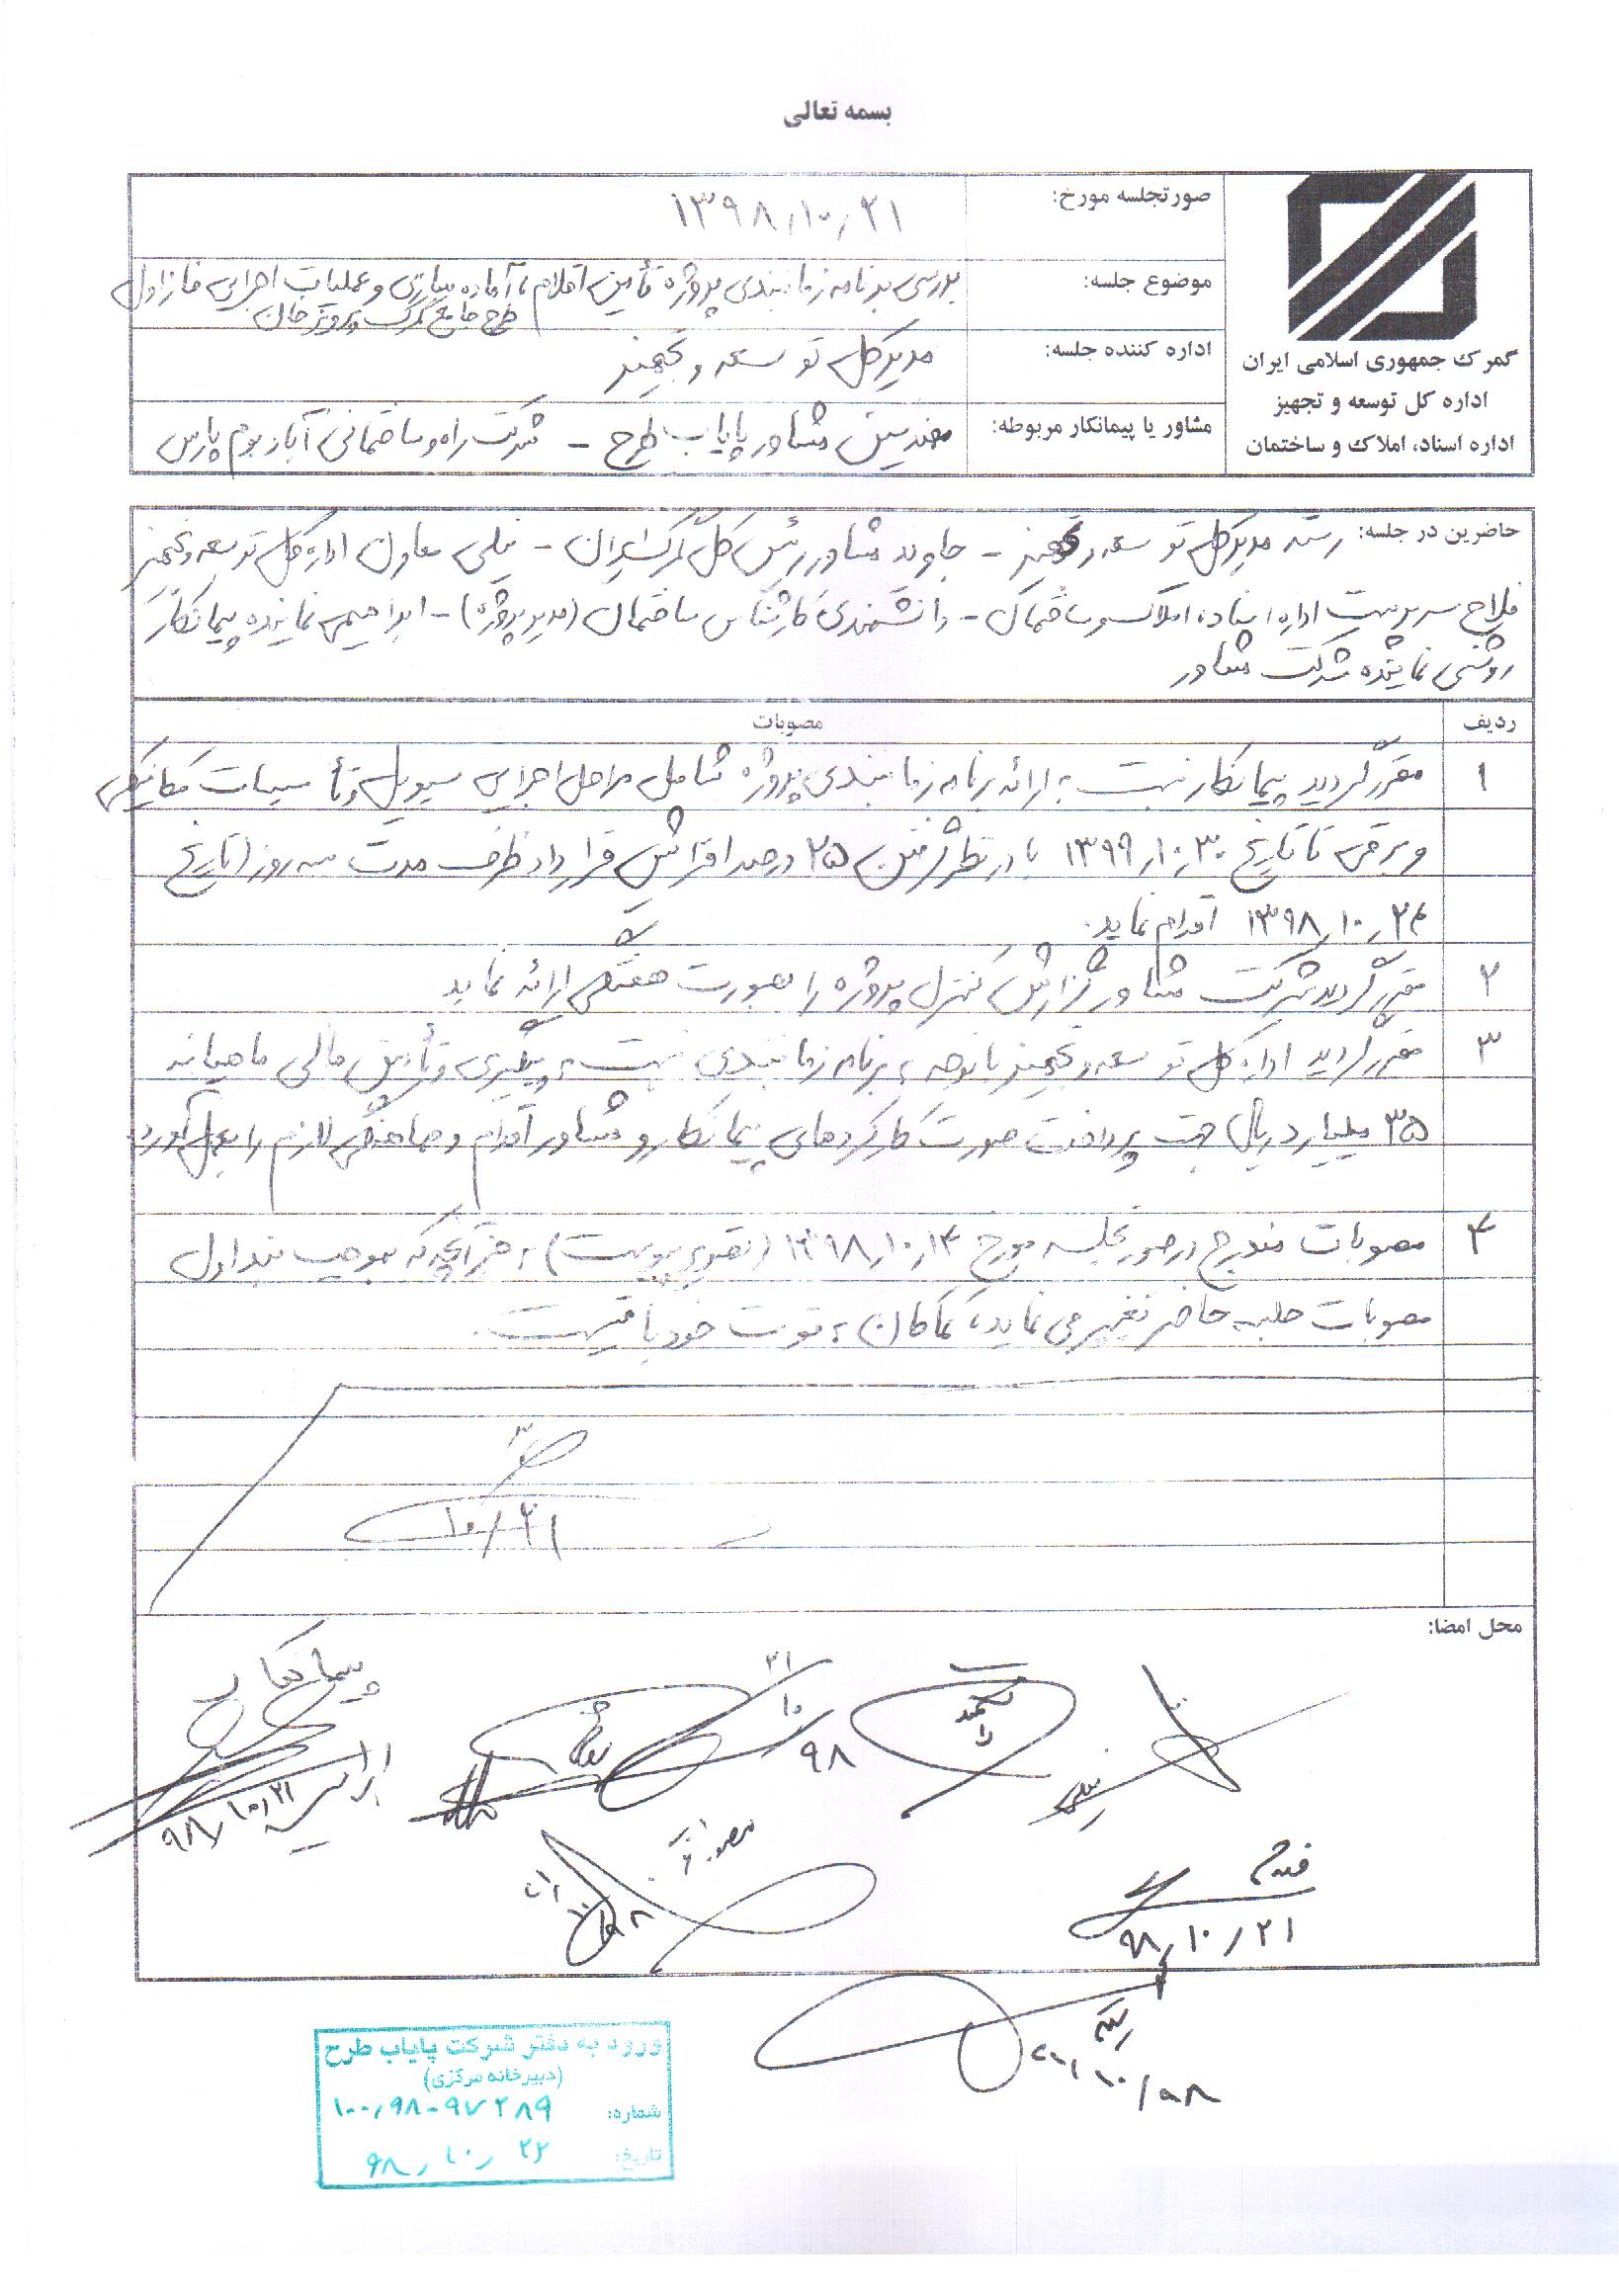 بسمه تعالی
گمرک جمهوری اسلامی ایران
اداره کل توسعه و تجهیز
اداره اسناد، املاک و ساختمان
صورتجلسه مورخ: ۱۳۹۸٫۱۰٫۲۱
موضوع جلسه: بررسی برنامه زمانبندی پروژه تأمین اقلام، آماده سازی و عملیات اجرایی فاز اول
طرح جامع گمرک پرویزخان
اداره کننده جلسه: مدیرکل توسعه و تجهیز
مشاور یا پیمانکار مربوطه: مهندسین مشاور پایاب طرح - شرکت راه و ساختمانی آباد بوم پارس
حاضرین در جلسه: رسته مدیرکل توسعه و تجهیز - جاوید مشاور رئیس کل گمرک ایران - نیلی معاون اداره کل توسعه و تجهیز
فلاح سرپرست اداره اسناد، املاک و ساختمان - دانشمندی کارشناس ساختمان (مدیر پروژه) - ابراهیمی نماینده پیمانکار
روشنی نماینده شرکت مشاور
ردیف مصوبات
۱ مقرر گردید پیمانکار نسبت به ارائه برنامه زمانبندی پروژه شامل مراحل اجرایی سیویل و تأسیسات مکانیکی
و برقی تا تاریخ ۱۳۹۹٫۱۰٫۳۰ با در نظر گرفتن ۲۵ درصد افزایش قرارداد ظرف مدت سه روز (تاریخ
۱۳۹۸٫۱۰٫۲۴ اقدام نماید.
۲ مقرر گردید شرکت مشاور گزارش کنترل پروژه را بصورت هفتگی ارائه نماید
۳ مقرر گردید اداره کل توسعه و تجهیز با توجه به برنامه زمانبندی نسبت به پیگیری و تأمین مالی ماهیانه
۳۵ میلیارد ریال جهت پرداخت صورت کارکردهای پیمانکار و مشاور اقدام و هماهنگی لازم را بعمل آورد.
۴ مصوبات مندرج در صورتجلسه مورخ ۱۳۹۸٫۱۰٫۱۴ (تصویر پیوست) به جز آنچه که بموجب بند اول
مصوبات جلسه حاضر تغییر می نماید، کماکان به قوت خود باقیست.
۱۰/۲۱
محل امضا:
پیمانکار
ابراهیمی
۹۸٫۱۰٫۲۱
۲۱
۱۰
۹۸
نیلی
فلاح
۹۸٫۱۰٫۲۱
ورود به دفتر شرکت پایاب طرح
(دبیرخانه مرکزی)
شماره: ۱۰۰٫۹۸-۹۷۲۸۹
تاریخ: ۹۸٫۱۰٫۲۲